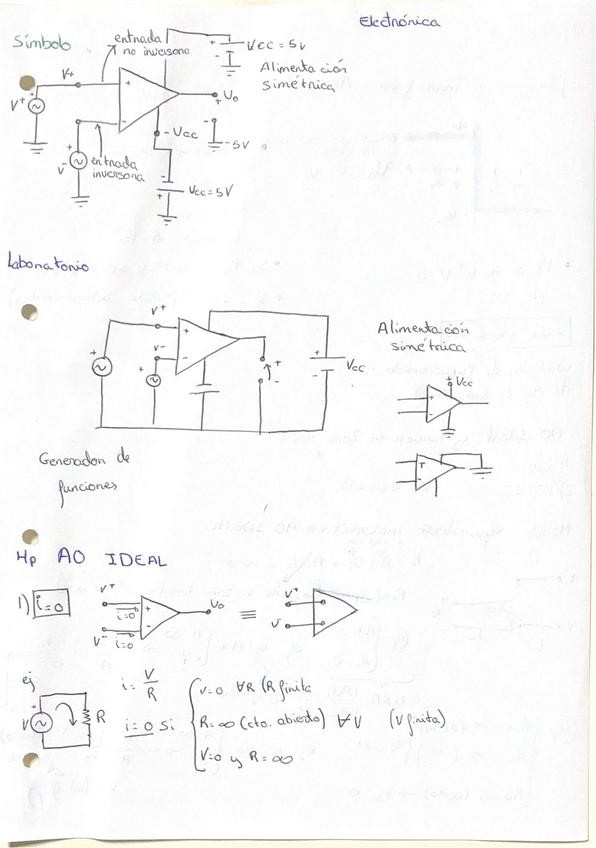 Electrónica
Símbolo
entrada
no inversora
+
Vcc = 5v
-
Alimentación
simétrica
V+
V+
+
-
Vo
+
-
-5V
- Vcc
V-
entrada
inversora
-
+
Vcc = 5V
Laboratorio
V+
V-
+
-
+
-
+
-
Vcc
Alimentación
simétrica
Vcc
+
-
Generador de
funciones
Hp AO IDEAL
1) i=0
V+
i=0
V-
i=0
+
-
Vo
≡
V+
V-
ej
V
R
i = V/R
i=0 si
V=0 ∀R (R finita
R=∞ (cto. abierto) ∀V (V finita)
V=0 y R=∞